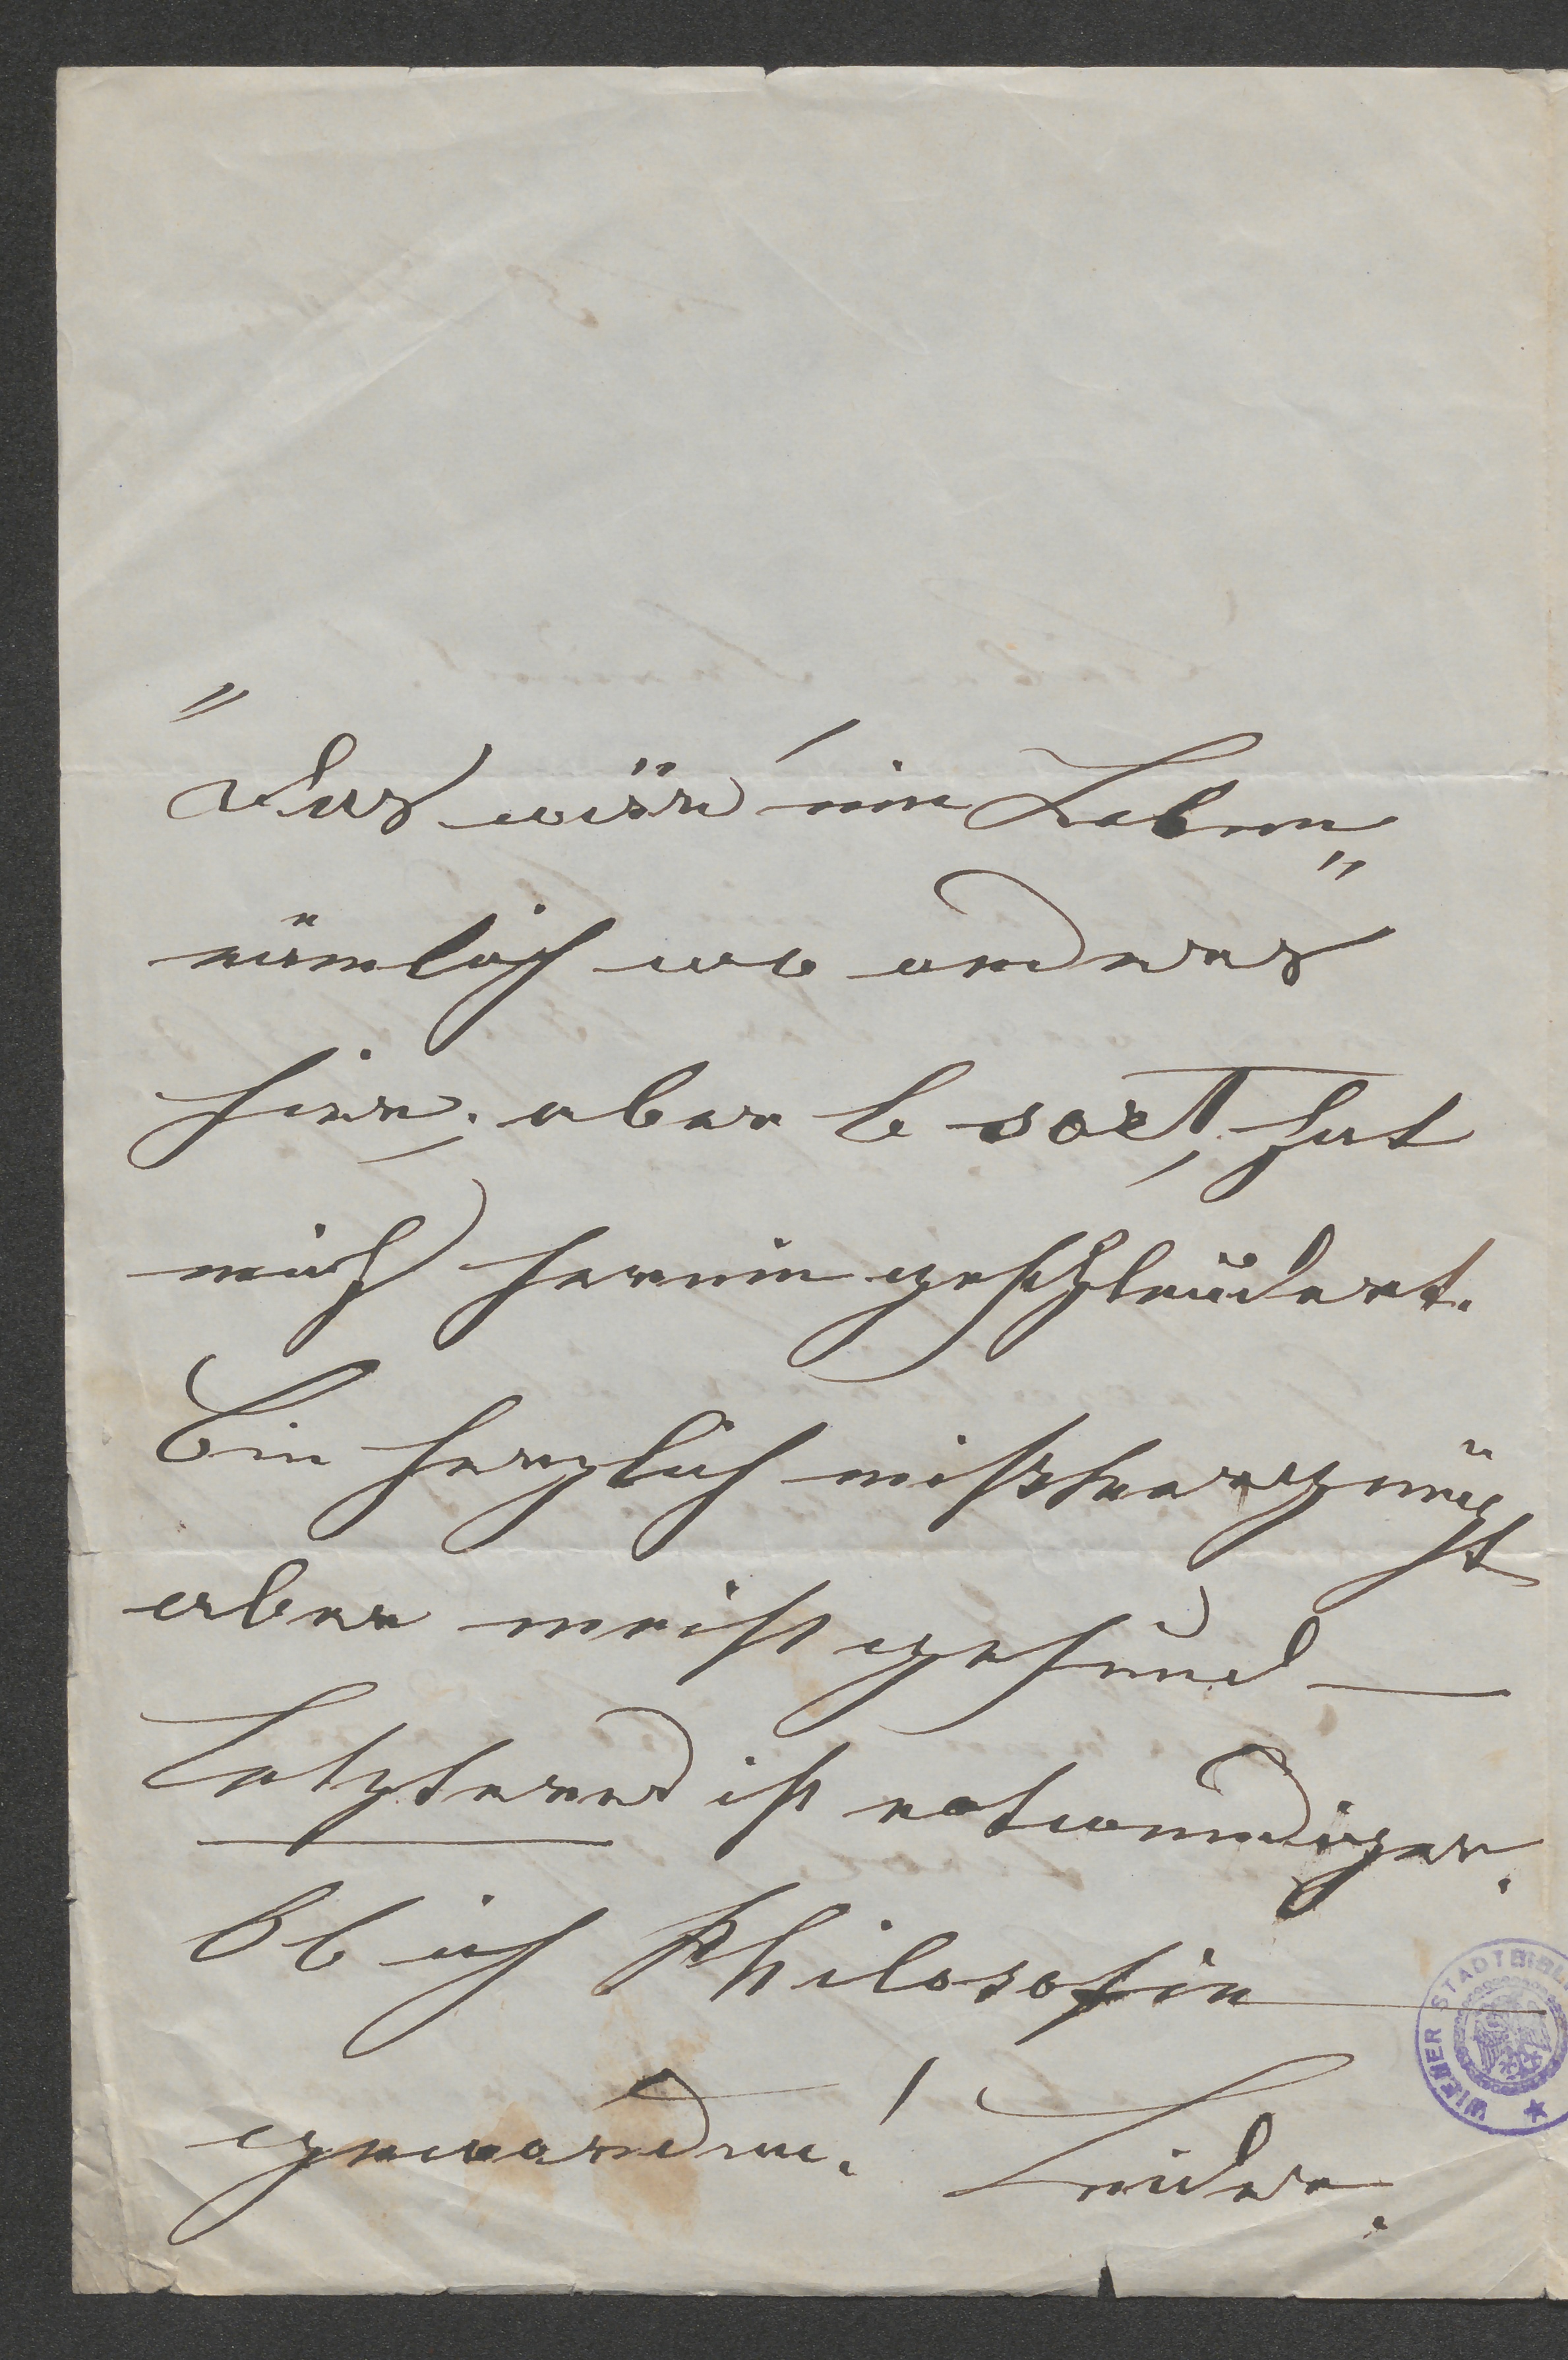 "
Das wär' ein Leben"
nämlich wo anders
hier; aber le sort, hat
mich herein geschleudert.
Bin herzlich missvergnügt
aber meist gesund —
Letzteres ist notwendiger.
Ob ich Philosofin
geworden! Leider.
WIENER STADTBIBL